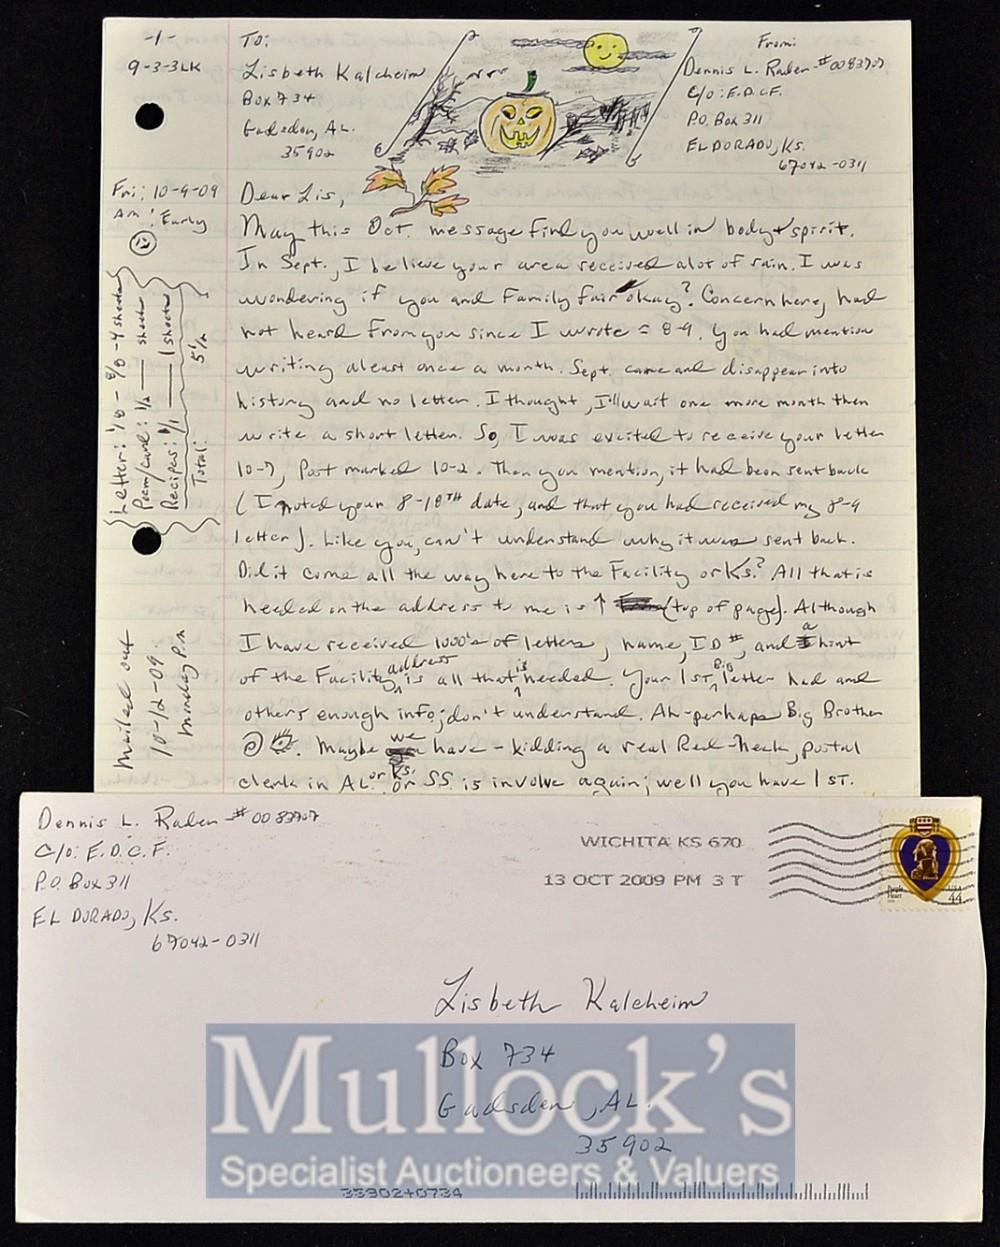 -1-
9-3-3LK
To:
Lisbeth Kalcheim
Box 734
Gadsden, AL.
35902
From:
Dennis L. Rader #0083707
C/O: E.D.C.F.
P.O. Box 311
EL DORADO, KS.
67042-0311
Fri: 10-9-09
Am: Early
Dear Lis,
May this Oct. message find you well in body + spirit.
In Sept., I believe your area received alot of rain. I was
wondering if you and Family fair okay? Concern here, had
not heard From you since I wrote = 8-9. You had mention
writing aleast once a month. Sept. came and disappear into
history and no letter. I thought, I'll wait one more month then
write a short letter. So, I was excited to receive your letter
10-7, Post marked 10-2. Then you mention, it had been sent back
(I noted your 8-18TH date, and that you had received my 8-9
letter). Like you, can't understand why it was sent back.
Did it come all the way here to the Facility or Ks.? All that is
needed in the address to me is ↑ (top of page). Although
I have received 1000's of letters, name, ID #, and a hint
of the Facility address is all that is needed. Your 1ST. Big letter had and
others enough info; don't understand. Ah-perhaps Big Brother
Maybe we have - kidding a real Red-Neck, postal
clerk in AL. or Ks. or SS. is involve again; well you have 1ST.
Letter: - 4 sheets
Poem/card: 1/2 — sheets
Recipes: 1/1 — 1 sheets
Total: 5 1/2
Mailed out
10-12-09.
Monday P.M
Dennis L. Rader #0083707
C/O: E.D.C.F.
P.O. Box 311
EL DORADO, KS.
67042-0311
WICHITA KS 670
13 OCT 2009 PM 3 T
Purple Heart
USA
44
Lisbeth Kalcheim
Box 734
Gadsden, AL.
35902
Mullock's
Specialist Auctioneers & Valuers
35902+0734